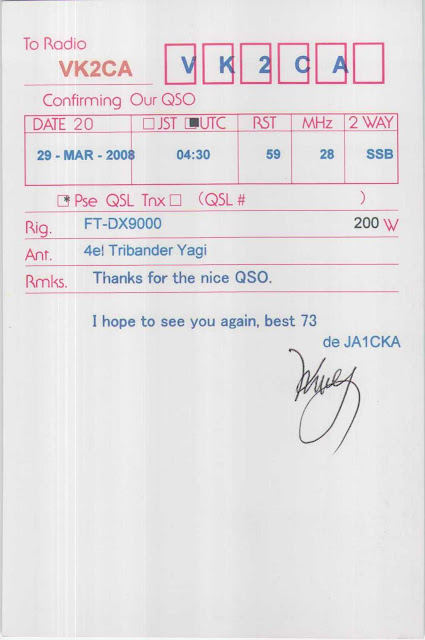 To Radio
VK2CA V K 2 C A
Confirming Our QSO
DATE 20 □JST ■UTC RST MHz 2 WAY
29 - MAR - 2008 04:30 59 28 SSB
☐* Pse QSL Tnx □ (QSL # )
Rig. FT-DX9000 200 W
Ant. 4el Tribander Yagi
Rmks. Thanks for the nice QSO.
I hope to see you again, best 73
de JA1CKA